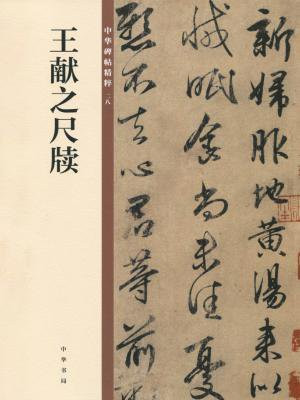 中华碑帖精粹 二八
王献之尺牍
中华书局
新婦服地黄湯来似
减眠食尚未佳憂
懸不去心君等前